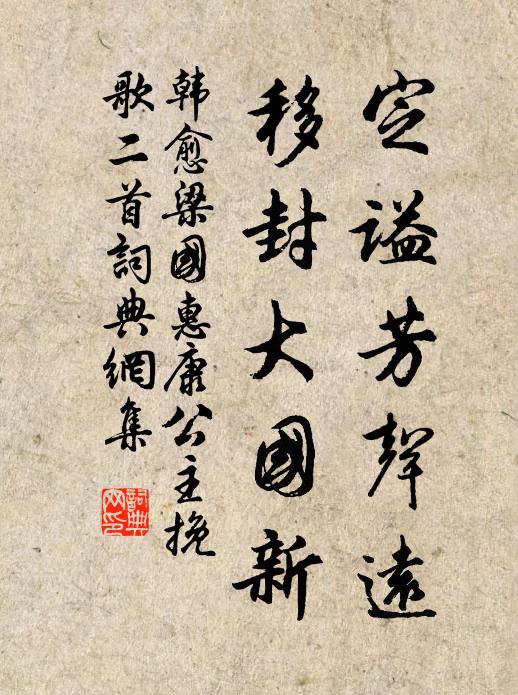 定謚芳聲遠
移封大國新
韩愈梁國惠康公主挽
歌二首詞典網集
詞典
网印